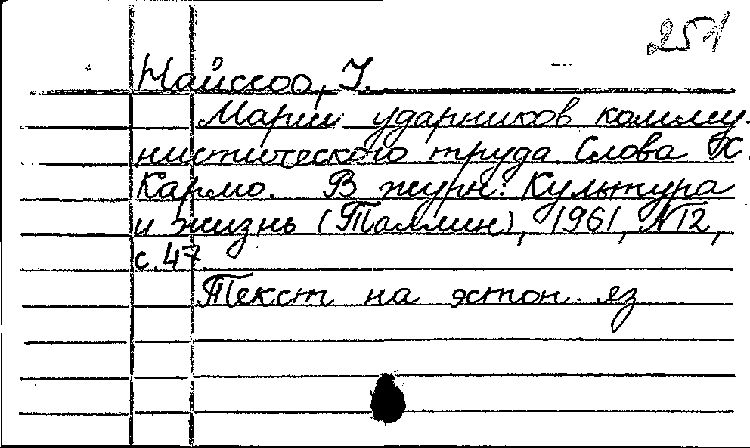 251
Найссоо, У.
Марш ударников комму-
нистического труда. Слова Х.
Кармо. В журн.: Культура
и жизнь (Таллин), 1961, №12,
с.47.
Текст на эстон. яз